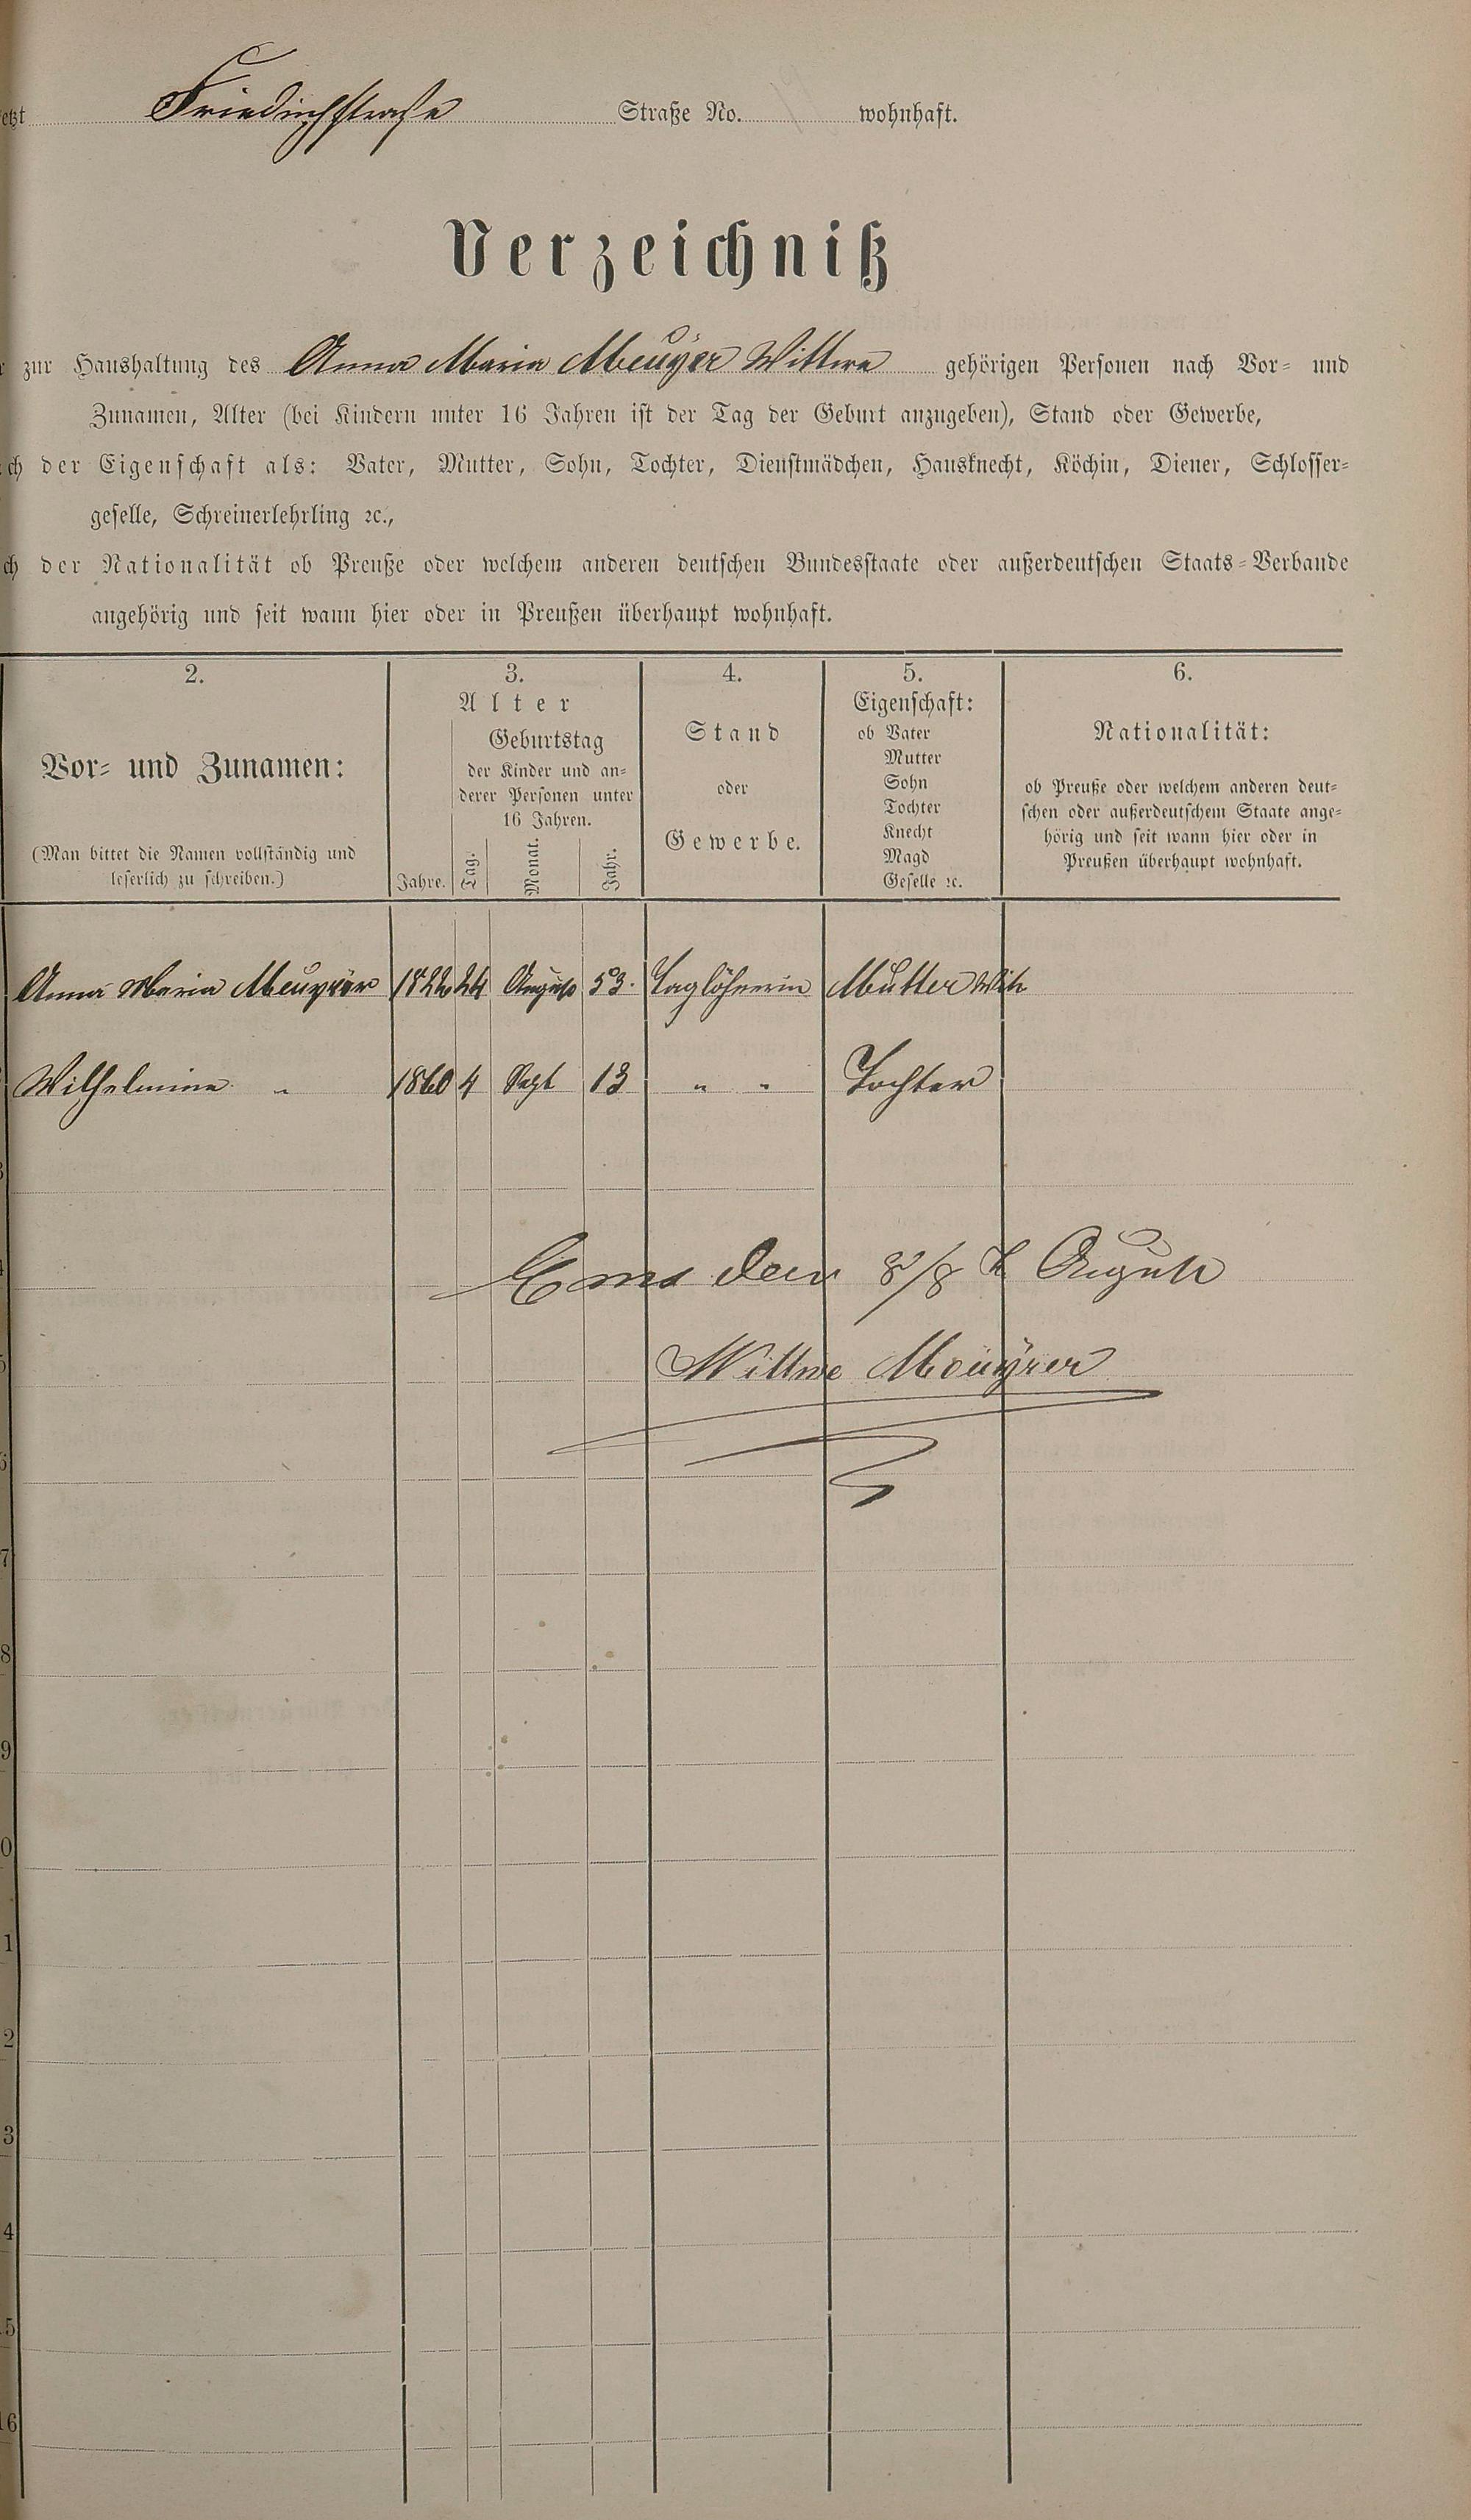 etzt Friedrichstraße Straße No. wohnhaft.
Verzeichniß
zur Haushaltung des Anna Maria Meuÿer Wittwe gehörigen Personen nach Vor- und
Zunamen, Alter (bei Kindern unter 16 Jahren ist der Tag der Geburt anzugeben), Stand oder Gewerbe,
ch der Eigenschaft als: Vater, Mutter, Sohn, Tochter, Dienstmädchen, Hausknecht, Köchin, Diener, Schlosser-
geselle, Schreinerlehrling ꝛc.,
ch der Nationalität ob Preuße oder welchem anderen deutschen Bundesstaate oder außerdeutschen Staats-Verbande
angehörig und seit wann hier oder in Preußen überhaupt wohnhaft.
2.
Vor- und Zunamen:
(Man bittet die Namen vollständig und
leserlich zu schreiben.)
3.
Alter
Geburtstag
der Kinder und an-
derer Personen unter
16 Jahren.
Jahre. Tag. Monat. Jahr.
4.
Stand
oder
Gewerbe.
5.
Eigenschaft:
ob Vater
Mutter
Sohn
Tochter
Knecht
Magd
Geselle ꝛc.
6.
Nationalität:
ob Preuße oder welchem anderen deut-
schen oder außerdeutschem Staate ange-
hörig und seit wann hier oder in
Preußen überhaupt wohnhaft.
Anna Maria 24 August 53. Taglöhnerin Mutter
Wilhelmine " 1860 4 Sept 13 " " Tochter
3
4
Ems den 8/8 August
5
Wittwe Meuÿrer
6
7
8
9
0
1
2
3
4
5
16